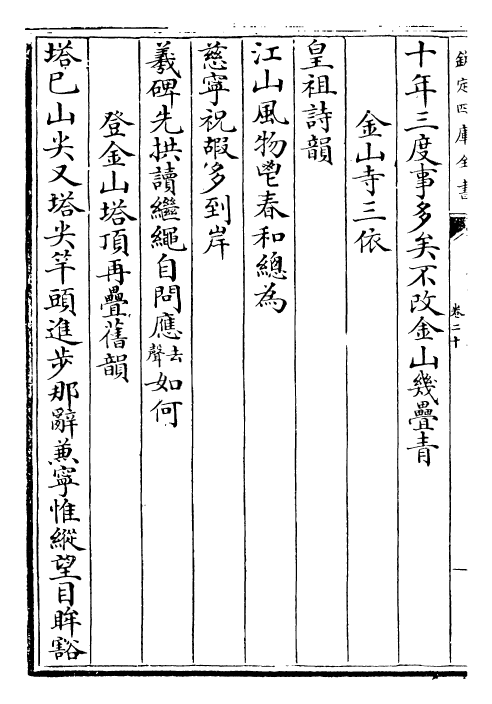 欽定四庫全書
卷二十
十年三度事多矣不改金山幾疊青
金山寺三依
皇祖詩韻
江山風物鬯春和總為
慈寧祝嘏多到岸
羲碑先拱讀繼繩自問應去聲如何
登金山塔頂再疊舊韻
塔已山尖又塔尖竿頭進步那辭兼寧惟縱望目眸豁